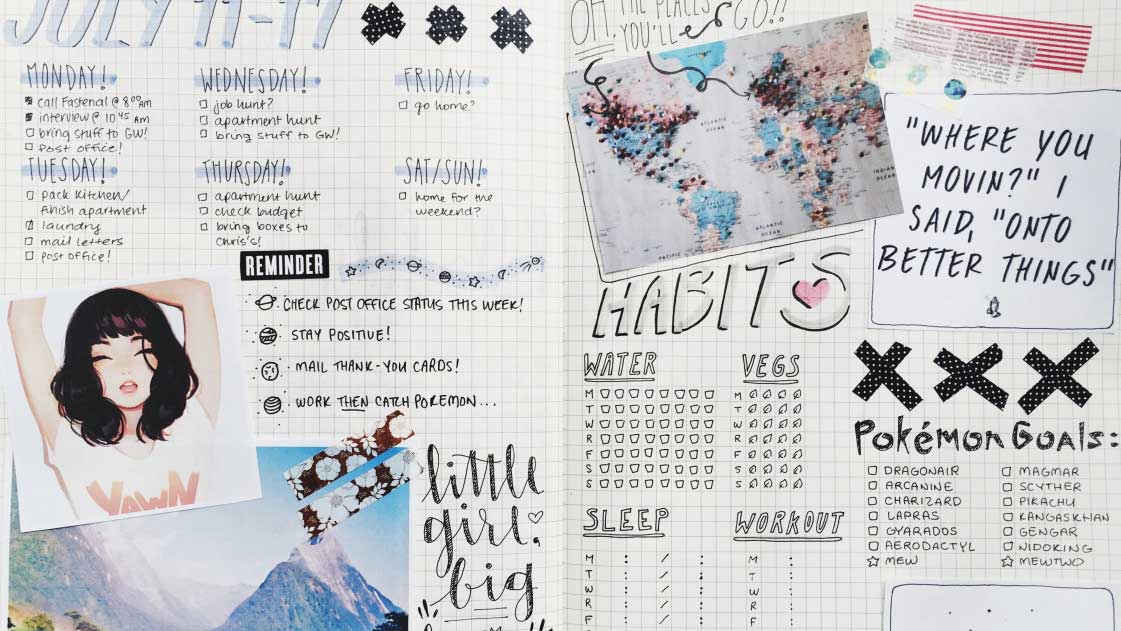 JULY 11-17
MONDAY!
call Fastenal @ 8:00am
interview @ 10:45 AM
bring stuff to GW!
post office!
TUESDAY!
pack kitchen/
finish apartment
laundry
mail letters
post office!
WEDNESDAY!
job hunt?
apartment hunt
bring stuff to GW!
THURSDAY!
apartment hunt
check budget
bring boxes to
Chris's!
FRIDAY!
go home?
SAT/SUN!
home for the
weekend?
REMINDER
CHECK POST OFFICE STATUS THIS WEEK!
STAY POSITIVE!
MAIL THANK-YOU CARDS!
WORK THEN CATCH POKEMON...
YAWN
little
girl,
big
OH, THE PLACES
YOU'LL GO!!
ATLANTIC
OCEAN
ATLANTIC
OCEAN
INDIAN
OCEAN
PACIFIC
"WHERE YOU
MOVIN?" I
SAID, "ONTO
BETTER THINGS"
HABITS
WATER
M
T
W
R
F
S
S
VEGS
M
T
W
R
F
S
S
SLEEP
M : / :
T : / :
W : / :
R : / :
F : / :
WORKOUT
M :
T :
W :
R :
F :
Pokémon Goals:
DRAGONAIR
ARCANINE
CHARIZARD
LAPRAS
GYARADOS
AERODACTYL
MEW
MAGMAR
SCYTHER
PIKACHU
KANGASKHAN
GENGAR
NIDOKING
MEWTWO